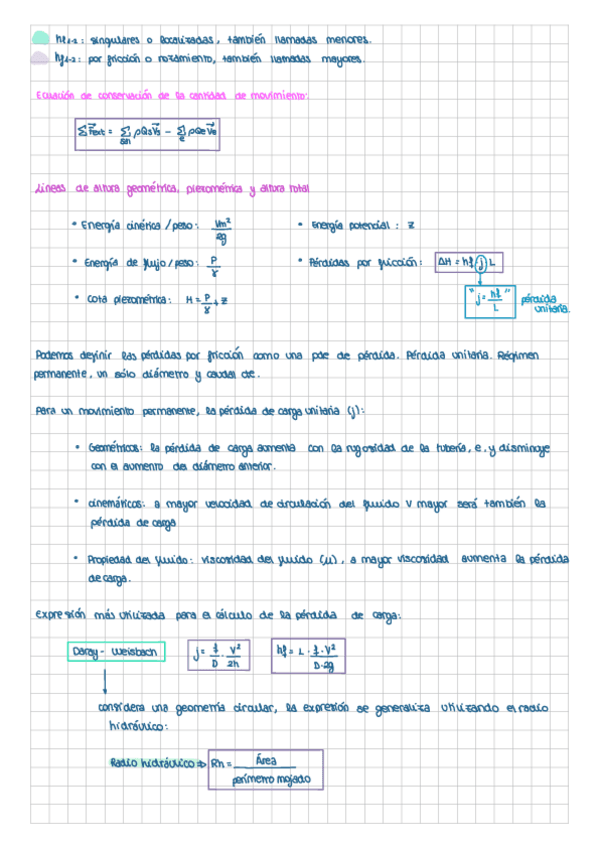 hL1-2: singulares o localizadas, también llamadas menores.
hf1-2: por fricción o rozamiento, también llamadas mayores.
Ecuación de conservación de la cantidad de movimiento:
ΣF⃗ext = Σ ρQsV⃗s − Σ ρQeV⃗e
Líneas de altura geométrica, piezométrica y altura total
• Energía cinética / peso: Vm² / 2g
• Energía potencial : z
• Energía de flujo / peso: P / γ
• Pérdidas por fricción: ΔH = hf j L
• Cota piezométrica: H = P/γ + z
"j = hf / L" pérdida unitaria.
Podemos definir las pérdidas por fricción como una pde de pérdida. Pérdida unitaria. Régimen
permanente, un sólo diámetro y caudal de.
Para un movimiento permanente, la pérdida de carga unitaria (j):
• Geométricos: la pérdida de carga aumenta con la rugosidad de la tubería, e, y disminuye
con el aumento del diámetro anterior.
• cinemáticos: a mayor velocidad de circulación del fluido V mayor será también la
pérdida de carga
• Propiedad del fluido: viscosidad del fluido (μ), a mayor viscosidad aumenta la pérdida
de carga.
expresión más utilizada para el cálculo de la pérdida de carga:
Darcy - Weisbach
j = f/D · V²/2h
hf = L · f·V² / D·2g
considera una geometría circular, la expresión se generaliza utilizando el radio
hidráulico:
Radio hidráulico ⇒ Rh = Área / perímetro mojado